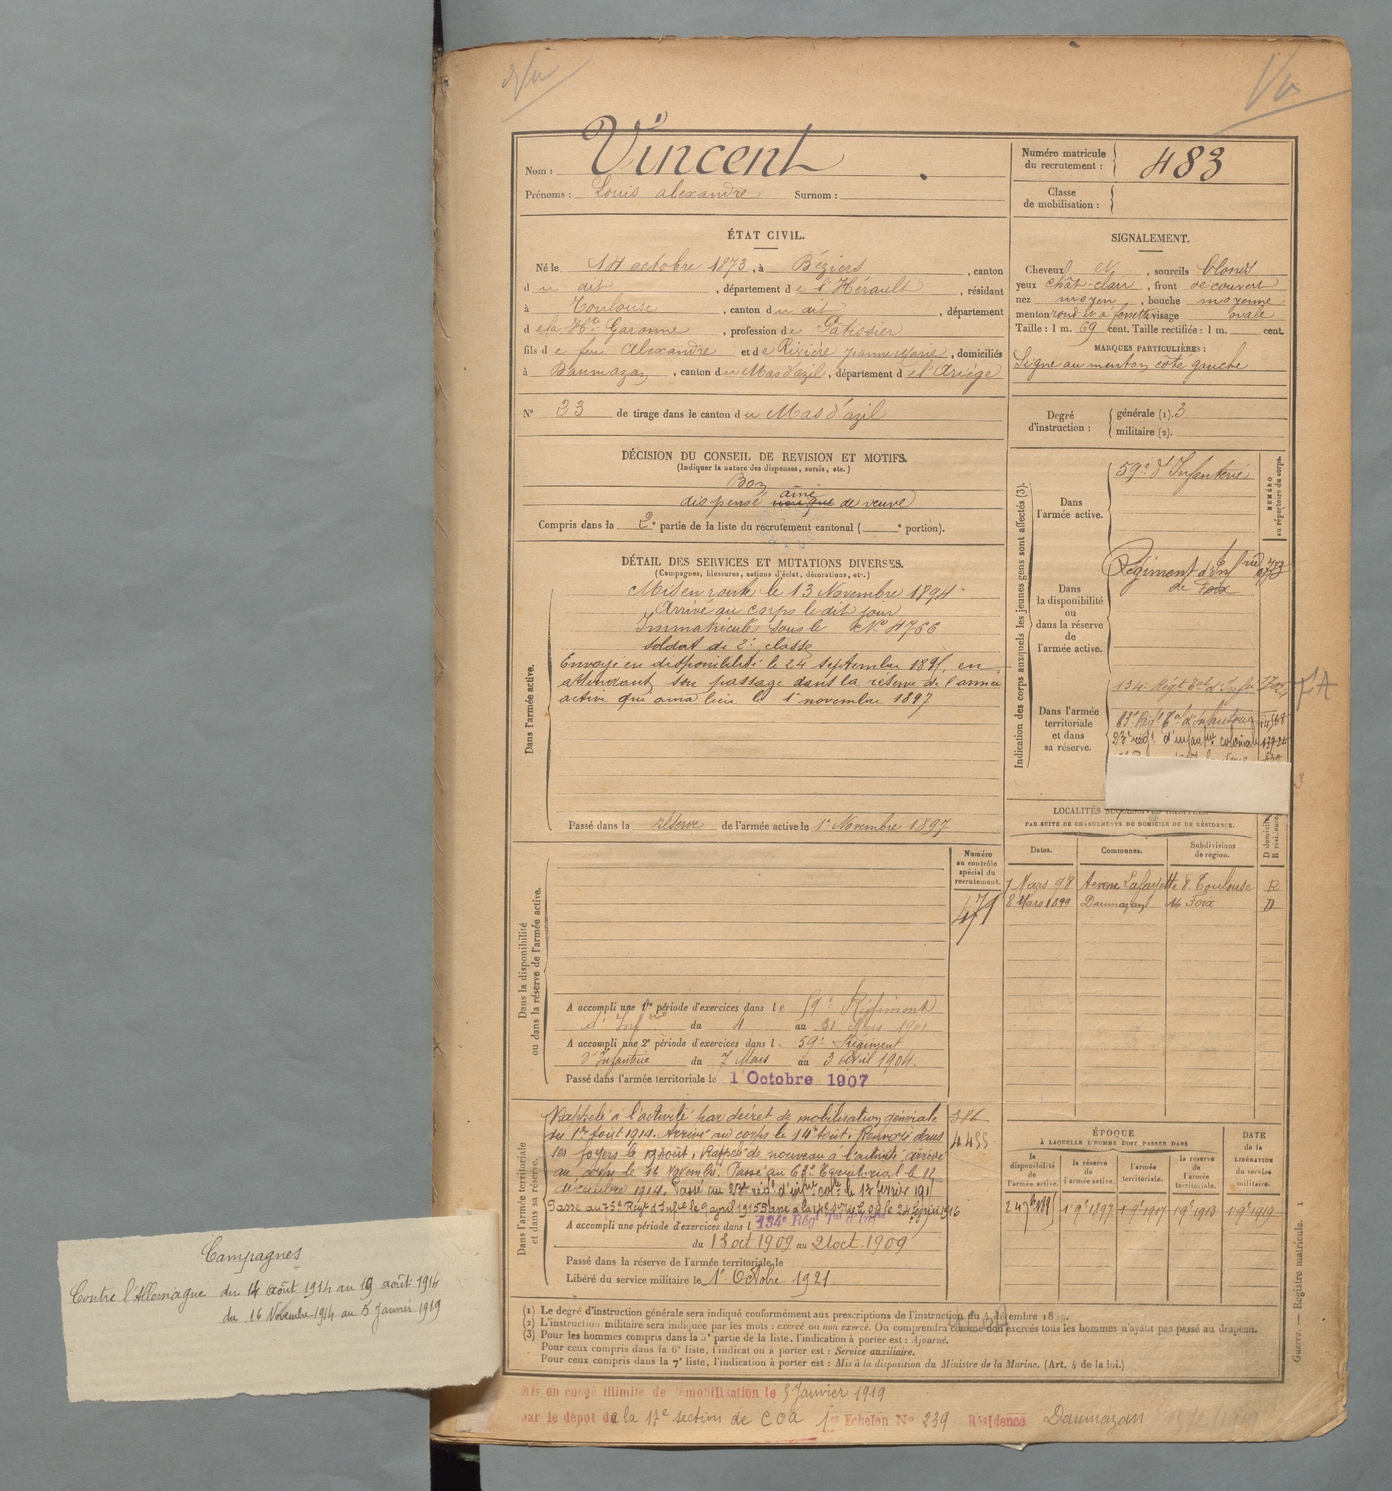 Nom : Vincent
Prénoms : Louis alexandre Surnom :
Numéro matricule du recrutement : 483
Classe de mobilisation :
ÉTAT CIVIL.
Né le 14 octobre 1873, à Béziers, canton
du dit, département de l'Hérault, résidant
à Toulouse, canton du dit, département
de la Hte Garonne, profession de Patissier
fils de feu Alexandre et de Rivière Jeanne Marie, domiciliés
à Daumazan, canton du Mas d'azil, département de l'Ariège
N° 33 de tirage dans le canton du Mas d'azil
SIGNALEMENT.
Cheveux et, sourcils blonds
yeux chât-clair, front découvert
nez moyen, bouche moyenne
menton rond et à fossette visage ovale
Taille : 1 m. 69 cent. Taille rectifiée : 1 m. cent.
MARQUES PARTICULIÈRES :
Signe au menton côté gauche
Degré d'instruction : générale (1). 3
militaire (2).
DÉCISION DU CONSEIL DE REVISION ET MOTIFS.
(Indiquer la nature des dispenses, sursis, etc.)
Bon
aîné
dispensé unique de veuve
Compris dans la 2e partie de la liste du recrutement cantonal ( e portion).
DÉTAIL DES SERVICES ET MUTATIONS DIVERSES.
(Campagnes, blessures, actions d'éclat, décorations, etc.)
Dans l'armée active.
Mis en route le 13 Novembre 1894
Arrivé au corps le dit jour
Immatriculé sous le N° 4766
soldat de 2e classe
Envoyé en disponibilité le 24 septembre 1895, en
attendant son passage dans la réserve de l'armée
active qui aura lieu le 1er novembre 1897
Passé dans la réserve de l'armée active le 1er Novembre 1897
Indication des corps auxquels les jeunes gens sont affectés (3).
NUMÉRO au répertoire du corps.
Dans l'armée active.
59e d'Infanterie
Dans la disponibilité ou dans la réserve de l'armée active.
Régiment d'Inf
de Foix
Dans l'armée territoriale et dans sa réserve.
134e Régt Tal d'Infie
23e régt d'infanrie coloniale
LOCALITÉS SUCCESSIVES HABITÉES
PAR SUITE DE CHANGEMENTS DE DOMICILE OU DE RÉSIDENCE.
Dates. Communes. Subdivisions de région. D domicile R résidence.
7 Mars 98 Avenue Lafayette 8. Toulouse R
8 Mars 1899 Daumazan 16 Foix D
Numéro au contrôle spécial du recrutement.
471
Dans la disponibilité ou dans la réserve de l'armée active.
A accompli une 1re période d'exercices dans le 59e Régiment
d'Infrie du 4 au 31 Mars 1901
A accompli une 2e période d'exercices dans l. 59e Régiment
d'Infanterie du 7 Mars au 3 avril 1904.
Passé dans l'armée territoriale le 1 Octobre 1907
Dans l'armée territoriale et dans sa réserve.
Rappelé à l'activité par décret de mobilisation générale
du 1er août 1914. Arrivé au corps le 14 août. Renvoyé dans
ses foyers le 19 août. Rappelé de nouveau à l'activité arrivé
au corps le 16 Novembre. Passé au Territorial le 11
décembre 1914. Passé au 23e régt d'infrie colle le 17 février 1915
4455
A accompli une période d'exercices dans l 134e Régt Tal d'Infie
du 13 oct 1909 au 21 oct. 1909
Passé dans la réserve de l'armée territoriale le
Libéré du service militaire le 1er Octobre 1921
ÉPOQUE
À LAQUELLE L'HOMME DOIT PASSER DANS
la disponibilité de l'armée active. la réserve de l'armée active. l'armée territoriale. la réserve de l'armée territoriale.
DATE de la LIBÉRATION du service militaire.
24 7bre 1895 1er 9bre 1897 1er 9bre 1907 1er 9bre 1913 1er 9bre 1919
(1) Le degré d'instruction générale sera indiqué conformément aux prescriptions de l'instruction du 4 décembre 1889.
(2) L'instruction militaire sera indiquée par les mots : exercé ou non exercé. On comprendra comme non exercés tous les hommes n'ayant pas passé au drapeau.
(3) Pour les hommes compris dans la 5e partie de la liste, l'indication à porter est : Ajourné.
Pour ceux compris dans la 6e liste, l'indication à porter est : Service auxiliaire.
Pour ceux compris dans la 7e liste, l'indication à porter est : Mis à la disposition du Ministre de la Marine. (Art. 4 de la loi.)
Guerre. — Registre matricule. 1
Mis en congé illimité de démobilisation le 5 Janvier 1919
par le dépôt de la 17e section de COA 1er Echelon N° 239 Résidence Daumazan
Campagnes
Contre l'Allemagne du 14 août 1914 au 19 août 1914
du 16 Novembre 1914 au 5 Janvier 1919